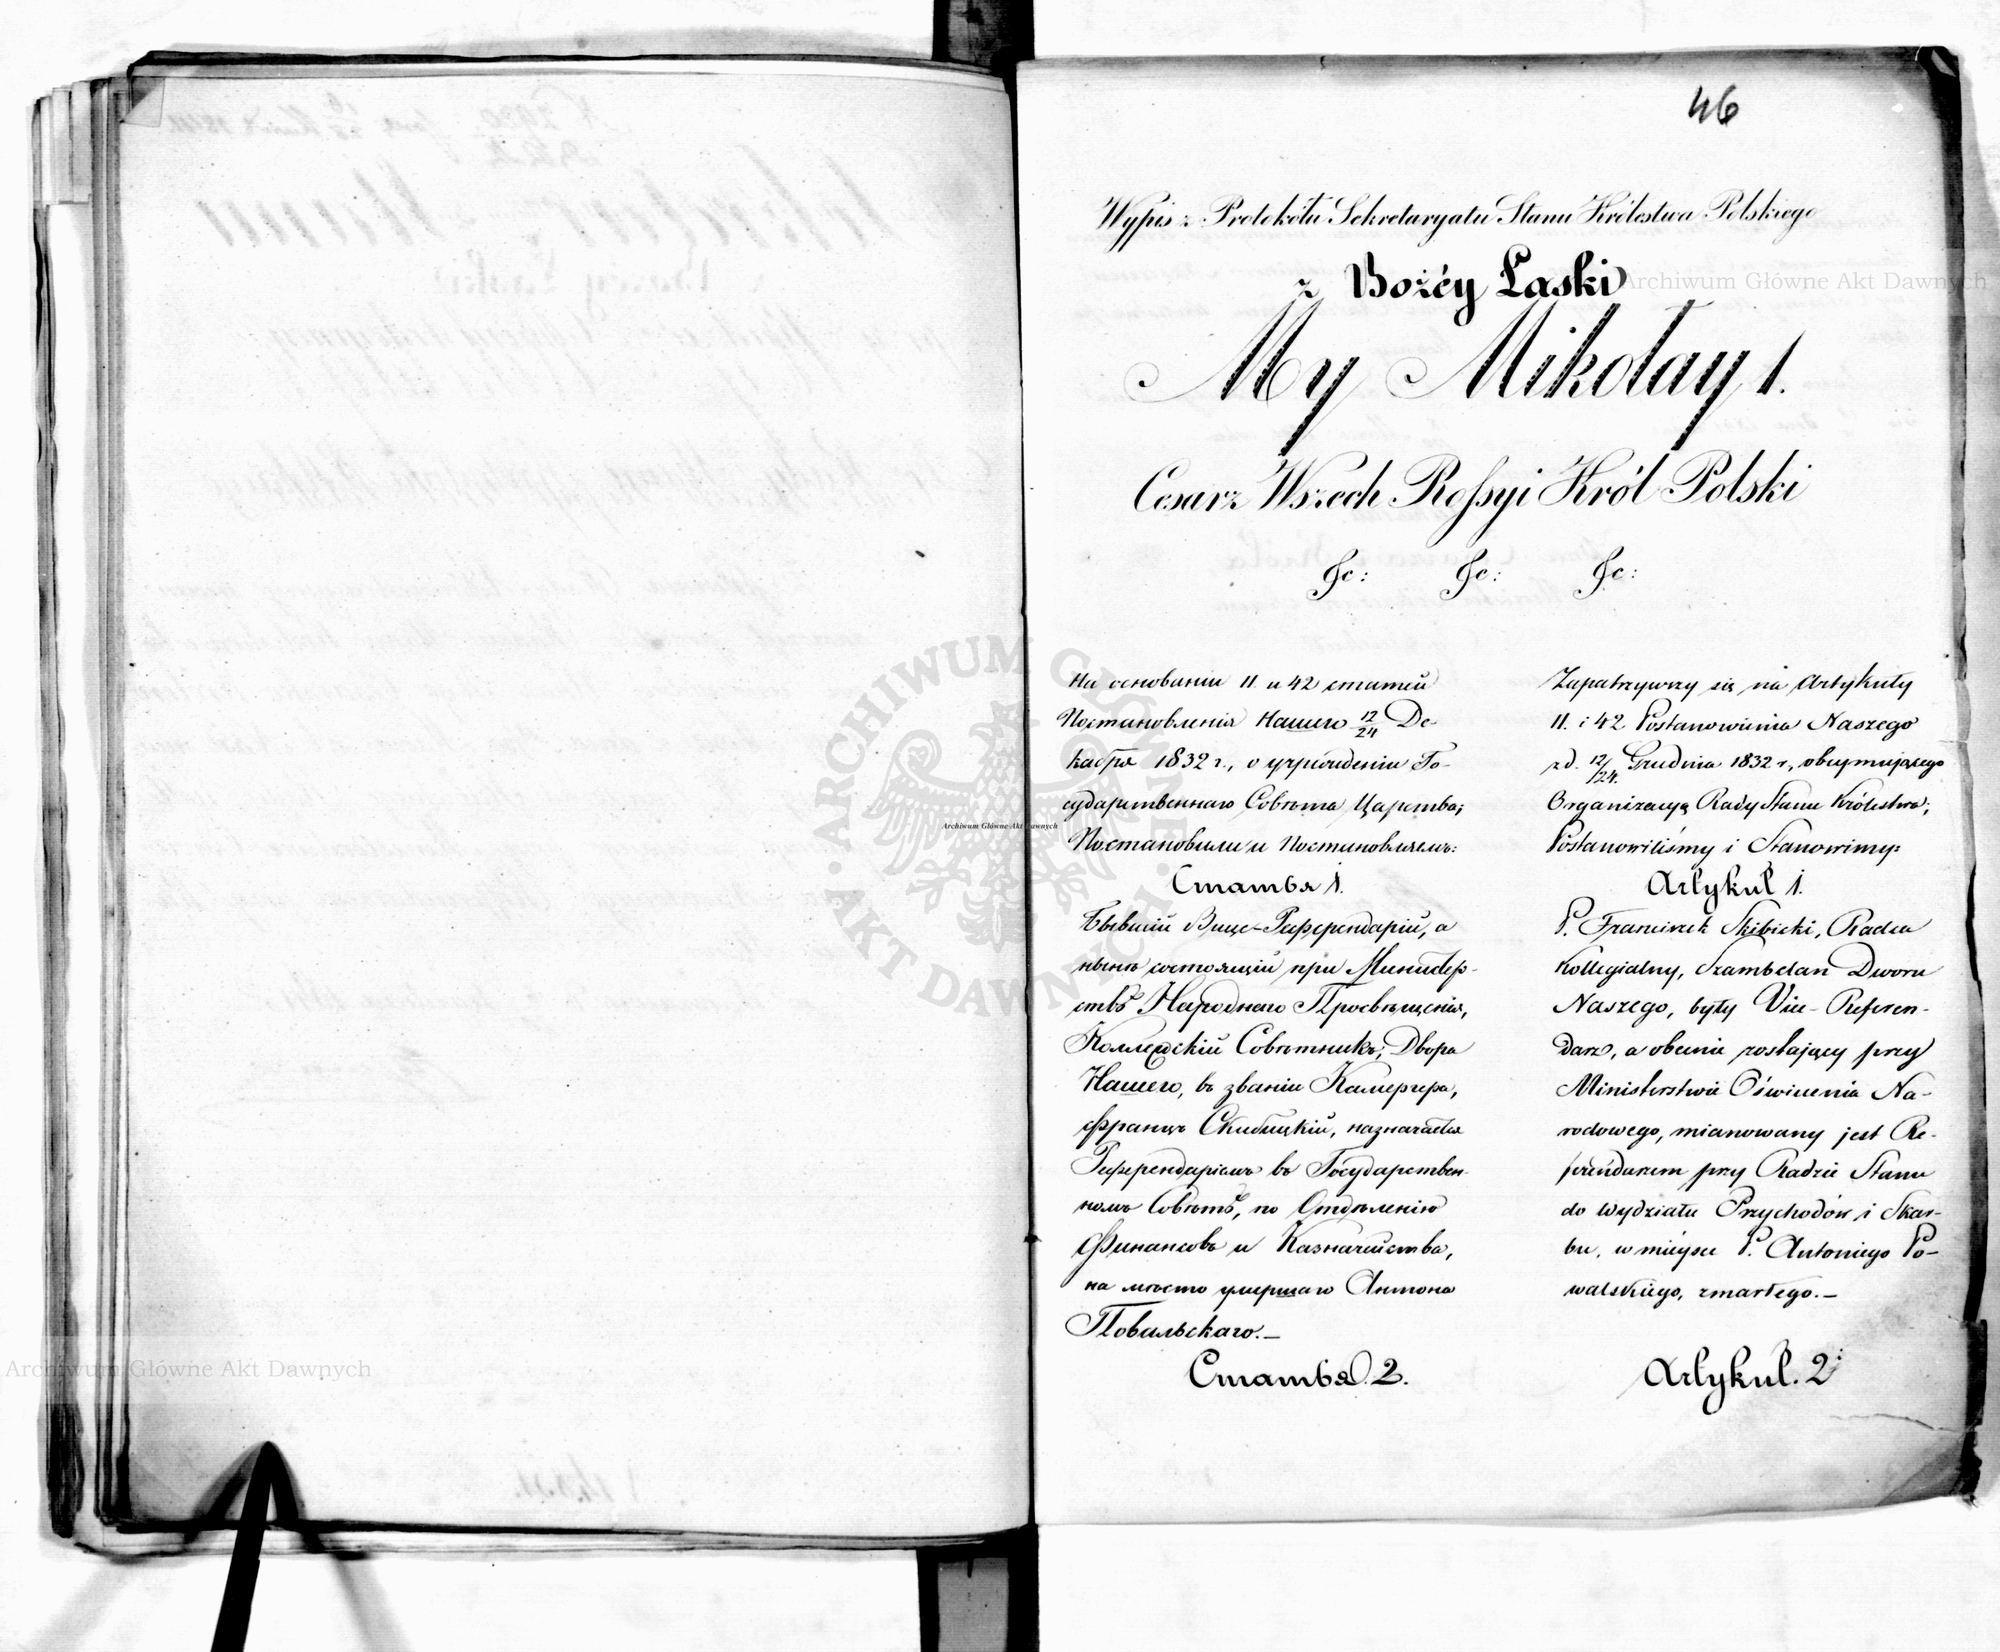 46
Wypis z Protokółu Sekretaryatu Stanu Królestwa Polskiego
z Bożéy Łaski
My Mikołay 1.
Cesarz Wszech Rossyi Król Polski
&c: &c: &c:
На основаніи 11. и 42 статей
Постановленія Нашего 12/24 Де-
кабря 1832 г., о учрежденіи Го-
сударственнаго Совѣта Царства;
Постановили и Постановляемъ:
Статья 1.
Бывшій Вице-Референдарій, а
нынѣ состоящій при Министер-
ствѣ Народнаго Просвѣщенія,
Коллежскій Совѣтникъ, Двора
Нашего, въ званіи Камергера,
Францъ Скибицкій, назначается
Референдаріемъ въ Государствен-
номъ Совѣтѣ, по Отдѣленію
Финансовъ и Казначейства,
на мѣсто умершаго Антона
Повальскаго.—
Статья 2.
Zapatrzywszy się na Artykuły
11. i 42 Postanowienia Naszego
z d. 12/24. Grudnia 1832 r., obeymującego
Organizacyą Rady Stanu Królestwa;
Postanowiliśmy i Stanowimy:
Artykuł 1.
P. Franciszek Skibicki, Radca
Kollegialny, Szambelan Dworu
Naszego, były Vice-Referen-
darz, a obecnie zostający przy
Ministerstwie Oświecenia Na-
rodowego, mianowany jest Re-
ferendarzem przy Radzie Stanu
do Wydziału Przychodów i Skar-
bu, w miéysce P. Antoniego Po-
walskiego, zmarłego.—
Artykuł. 2:
Archiwum Główne Akt Dawnych
Archiwum Główne Akt Dawnych
Archiwum Główne Akt Dawnych
ARCHIWUM GŁÓWNE AKT DAWNYCH